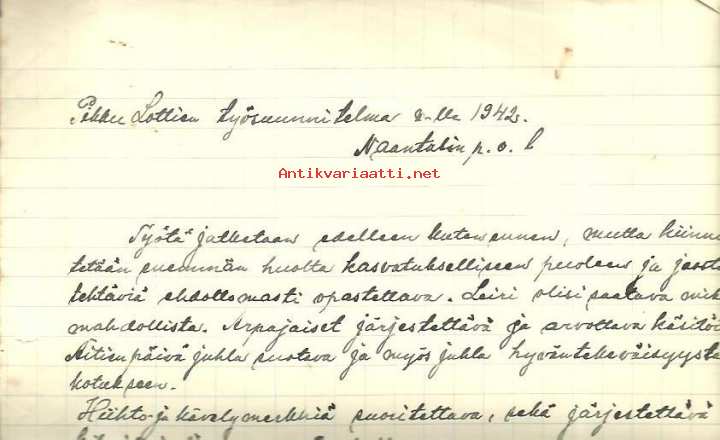 Pikku Lottien työsuunnitelma v-lle 1942.
Naantalin p. o.
Antikvariaatti.net
Työtä jatketaan edelleen kuten ennen, mutta kiinni
tetään enemmän huolta kasvatukselliseen puoleen ja
tehtäviä ehdottomasti opastettava. Leiri olisi saatava mik
mahdollista. Arpajaiset järjestettävä ja arvottava käsitöi
Äitienpäivä juhla vuotava ja myös juhla hyväntekeväisyysta
kotukseen.
Hiihto- ja kävelymerkkiä suoritettava, sekä järjestettävä